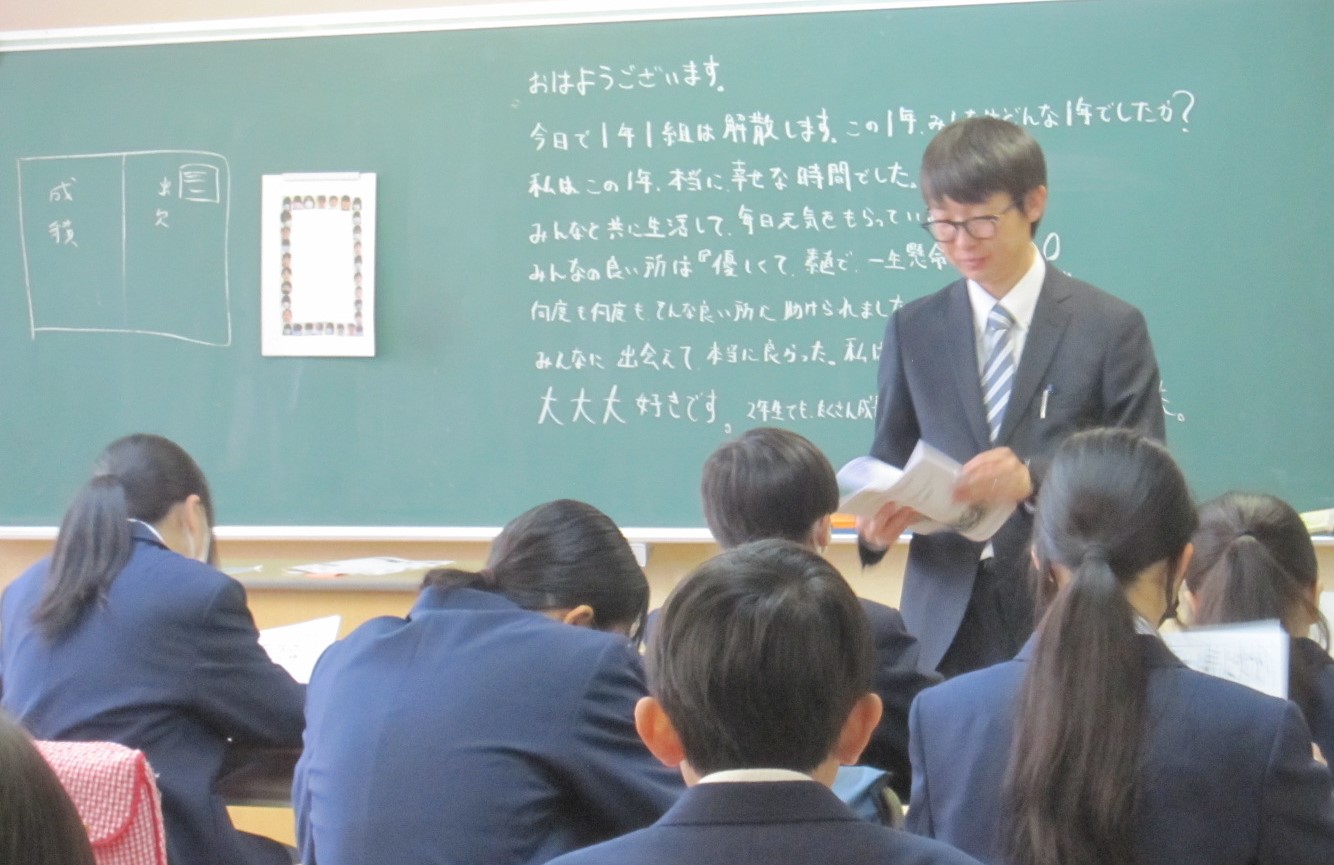 成績
出欠
おはようございます。
今日で1年1組は解散します。この1年、みんなはどんな1年でしたか?
私はこの1年、本当に幸せな時間でした。
みんなと共に生活して、毎日元気をもらってい
みんなの良い所は『優しくて、素直で、一生懸命
何度も何度もそんな良い所に助けられました
みんなに出会えて本当に良かった。私は
大大大好きです。2年生でも、たくさん成